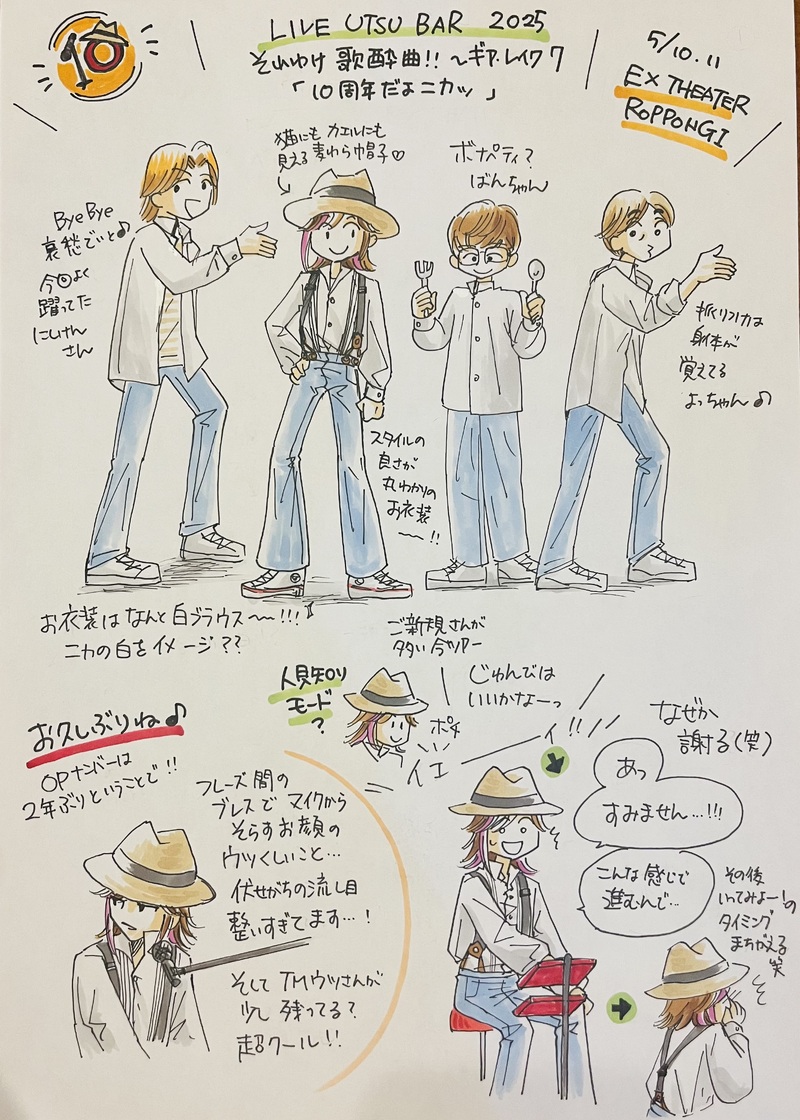 LIVE UTSU BAR 2025
それゆけ歌酔曲!! ～ギア・レイワ7
「10周年だよニカッ」
5/10.11
EX THEATER
ROPPONGI
10
猫にも カエルにも
見える麦わら帽子♡
ボナペティ?
ばんちゃん
Bye Bye
哀愁でいと♪
今回よく
躍ってた
にしけん
さん
振りリフトは
身体が
覚えてる
よっちゃん♪
スタイルの
良さが
丸わかりの
お衣装
～!!
お衣装は なんと 白ブラウス～!!!
ニカの白をイメージ??
ご新規さんが
多い今ツアー
人見知り
モード
?
ポチ
じゅんでは
いいかなーっ
イエ
イ!!
お久しぶりね♪
OPナンバーは
2年ぶりということで!!
フレーズ間の
ブレスで マイクから
そらすお顔の
ウツくしいこと…
伏せがちの流し目
整いすぎてます…!
そして TMウツさんが
少し 残ってる?
超クール!!
なぜか
謝る(笑)
あっ
すみません…!!!
こんな感じで
進むんで…
その後
いってみよー!の
タイミング
まちがえる
笑